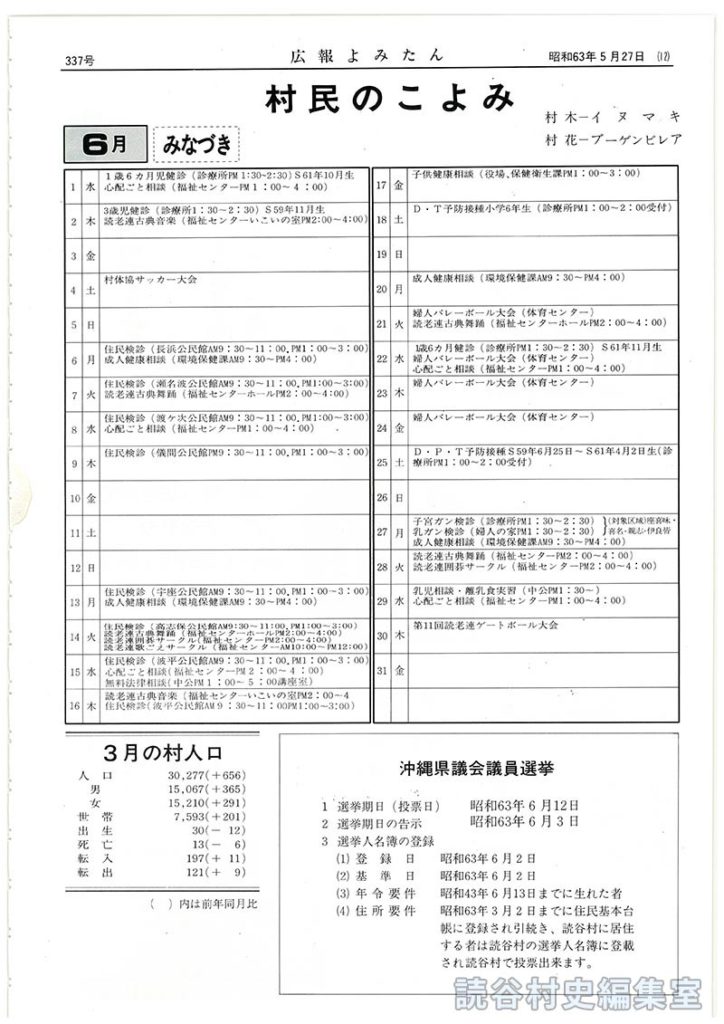 337号
広報よみたん
昭和63年5月27日 (12)
村民のこよみ
村木ーイヌマキ
村花ーブーゲンビレア
6月 みなづき
1 水 1歳6カ月児健診(診療所PM1:30~2:30)S61年10月生
心配ごと相談(福祉センターPM1:00~4:00)
2 木 3歳児健診(診療所1:30~2:30)S59年11月生
読老連古典音楽(福祉センターいこいの室PM2:00~4:00)
3 金
4 土 村体協サッカー大会
5 日
6 月 住民検診(長浜公民館AM9:30~11:00,PM1:00~3:00)
成人健康相談(環境保健課AM9:30~PM4:00)
7 火 住民検診(瀬名波公民館AM9:30~11:00,PM1:00~3:00)
読老連古典舞踊(福祉センターホールPM2:00~4:00)
8 水 住民検診(渡ケ次公民館AM9:30~11:00,PM1:00~3:00)
心配ごと相談(福祉センターPM1:00~4:00)
9 木 住民検診(儀間公民館PM9:30~11:00,PM1:00~3:00)
10 金
11 土
12 日
13 月 住民検診(宇座公民館AM9:30~11:00,PM1:00~3:00)
成人健康相談(環境保健課AM9:30~PM4:00)
14 火 住民検診(高志保公民館AM9:30~11:00,PM1:00~3:00)
読老連古典舞踊(福祉センターホールPM2:00~4:00)
読老連囲碁サークル(福祉センターPM2:00~4:00)
読老連歌ごえサークル(福祉センターAM10:00~PM12:00)
15 水 住民検診(波平公民館AM9:30~11:00,PM1:00~3:00)
心配ごと相談(福祉センターPM2:00~4:00)
無料法律相談(中公PM1:00~5:00講座室)
16 木 読老連古典音楽(福祉センターいこいの室PM2:00~4
住民検診(波平公民館AM9:30~11:00PM1:00~3:00)
17 金 子供健康相談(役場、保健衛生課PM1:00~3:00)
18 土 D・T予防接種小学6年生(診療所PM1:00~2:00受付)
19 日
20 月 成人健康相談(環境保健課AM9:30~PM4:00)
21 火 婦人バレーボール大会(体育センター)
読老連古典舞踊(福祉センターホールPM2:00~4:00)
22 水 1歳6カ月健診(診療所PM1:30~2:30)S61年11月生
婦人バレーボール大会(体育センター)
心配ごと相談(福祉センターPM1:00~4:00)
23 木 婦人バレーボール大会(体育センター)
24 金 婦人バレーボール大会(体育センター)
25 土 D・P・T予防接種S59年6月25日~S61年4月2日生(診
療所PM1:00~2:00受付)
26 日
27 月 子宮ガン検診(診療所PM1:30~2:30)
乳ガン検診(婦人の家PM1:30~2:30)
(対象区域)座喜味・
喜名・親志・伊良皆
成人健康相談(環境保健課AM9:30~PM4:00)
28 火 読老連古典舞踊(福祉センターPM2:00~4:00)
読老連囲碁サークル(福祉センターPM2:00~4:00)
29 水 乳児相談・離乳食実習(中公PM1:30~)
心配ごと相談(福祉センターPM1:00~4:00)
30 木 第11回読老連ゲートボール大会
31 金
3月の村人口
人口 30,277(+656)
男 15,067(+365)
女 15,210(+291)
世帯 7,593(+201)
出生 30(- 12)
死亡 13(- 6)
転入 197(+ 11)
転出 121(+ 9)
( )内は前年同月比
沖縄県議会議員選挙
1 選挙期日(投票日) 昭和63年6月12日
2 選挙期日の告示 昭和63年6月3日
3 選挙人名簿の登録
(1)登録日 昭和63年6月2日
(2)基準日 昭和63年6月2日
(3)年令要件 昭和43年6月13日までに生れた者
(4)住所要件 昭和63年3月2日までに住民基本台
帳に登録され引続き、読谷村に居住
する者は読谷村の選挙人名簿に登載
され読谷村で投票出来ます。
読谷村史編集室